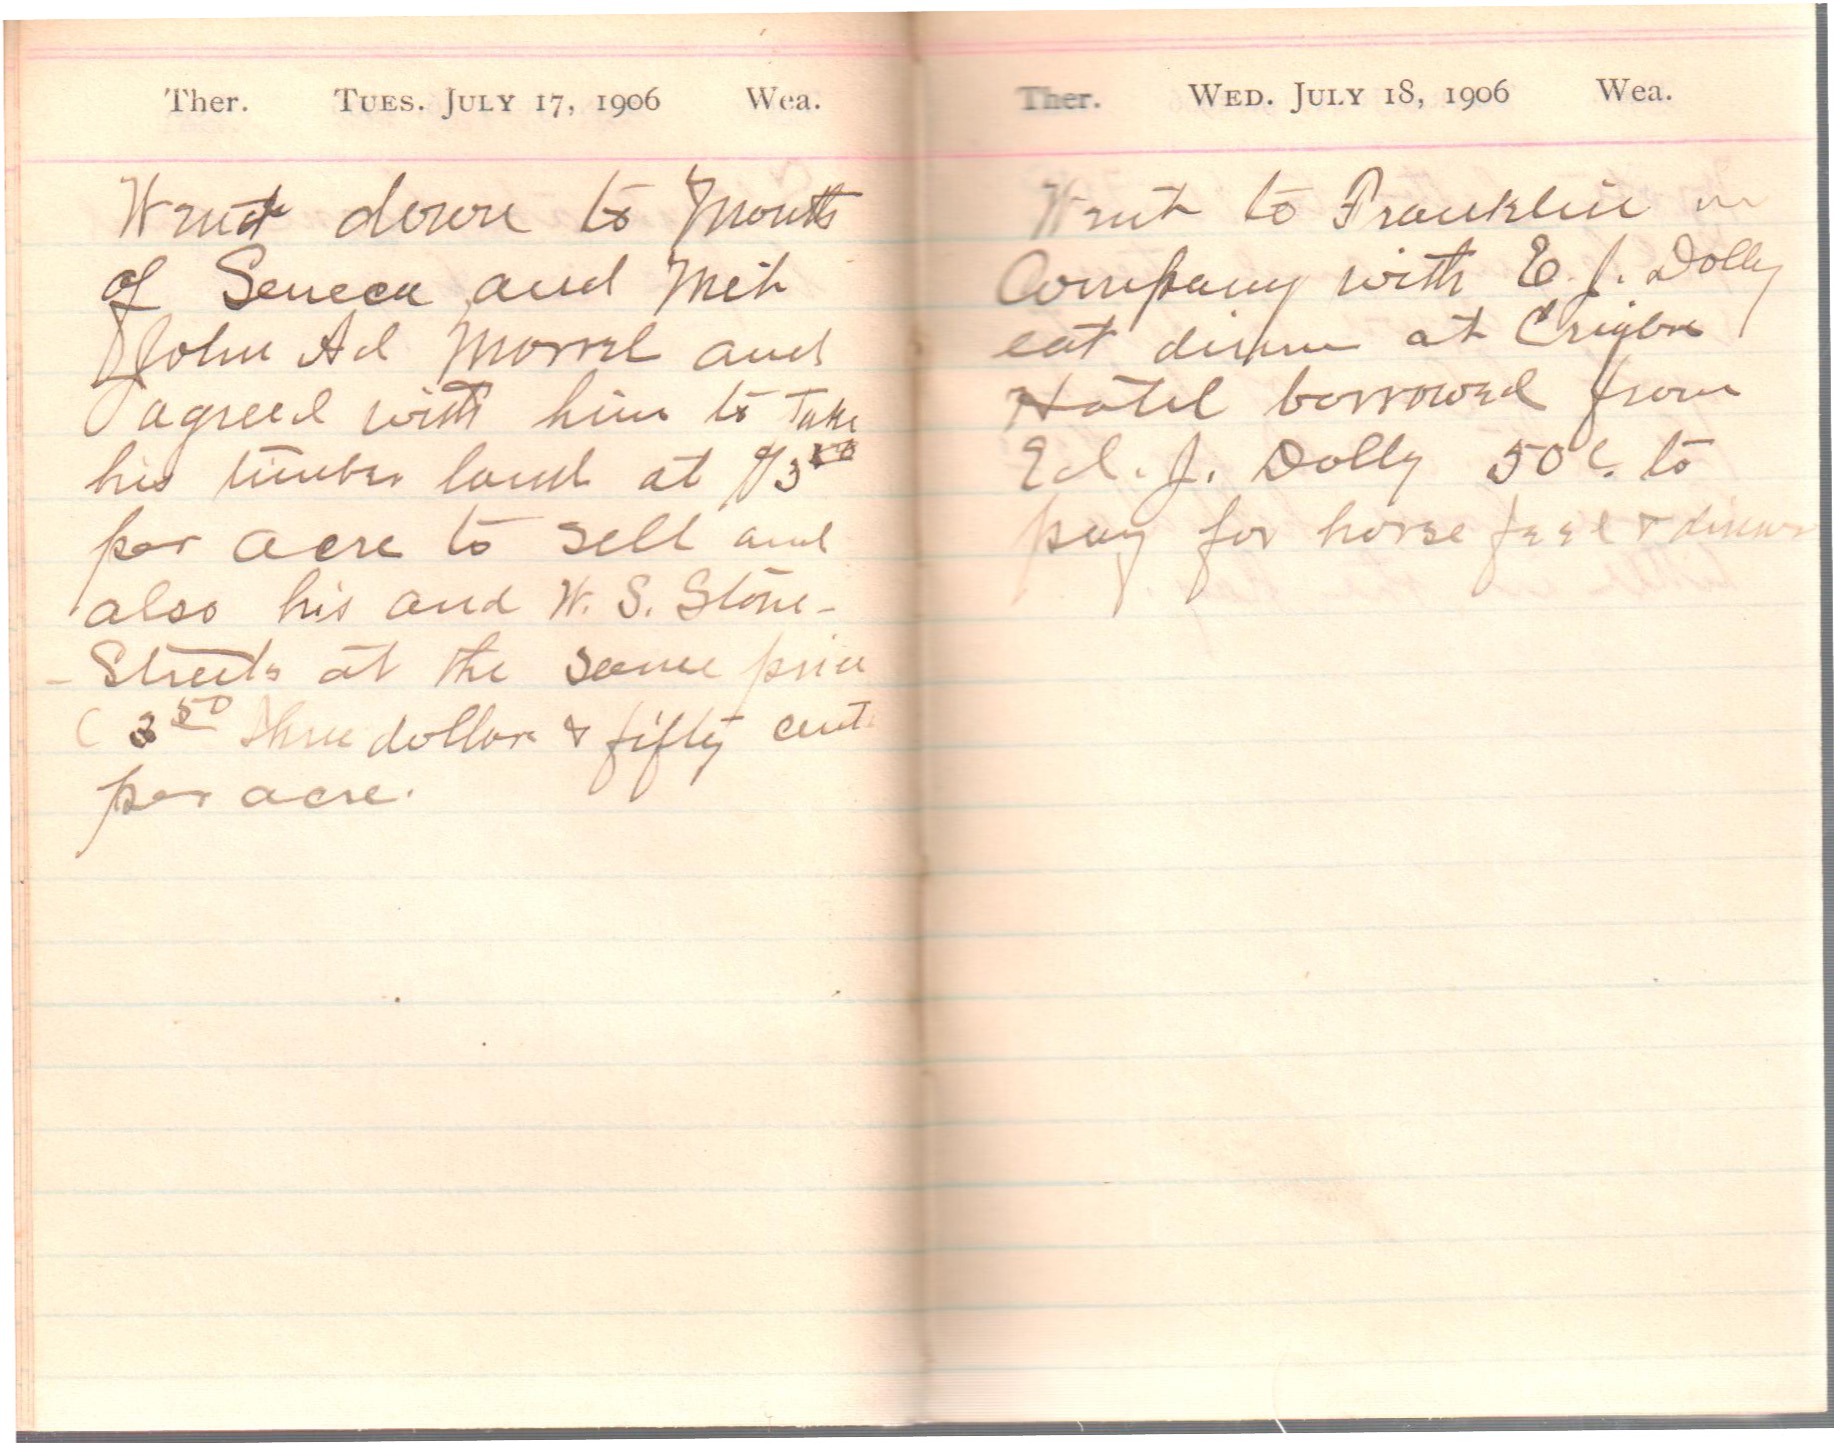 Ther. TUES. JULY 17, 1906 Wea.
Went down to Mouth
of Seneca and Met
John Ad Morrel and
agreed with him to Take
his timber land at $3 50
per acre to sell and
also his and W. S. Stone-
-Streets at the same price
( 3 50 Three dollar & fifty cent
per acre.
Ther. WED. JULY 18, 1906 Wea.
Went to Franklin in
Company with E. J. Dolly
eat dinner at
Hotel borrowed from
Ed. J. Dolly 50 c. to
pay for horse feed & dinner